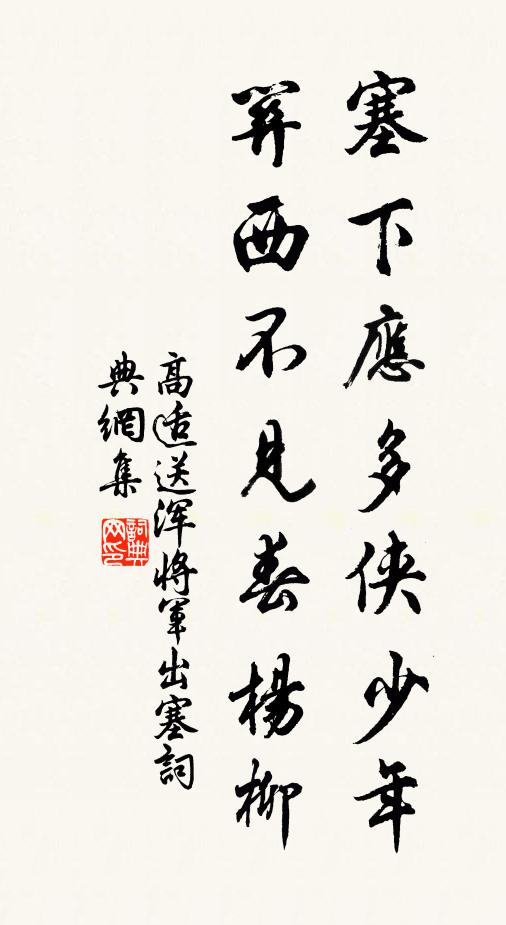 塞下應多俠少年
關西不見春楊柳
高适送渾將軍出塞詞
典網集
詞典
网印